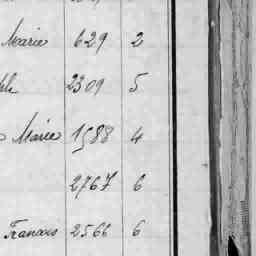 Marie 629 2
2309 5
Marie 1588 4
2767 6
Francois 2566 6